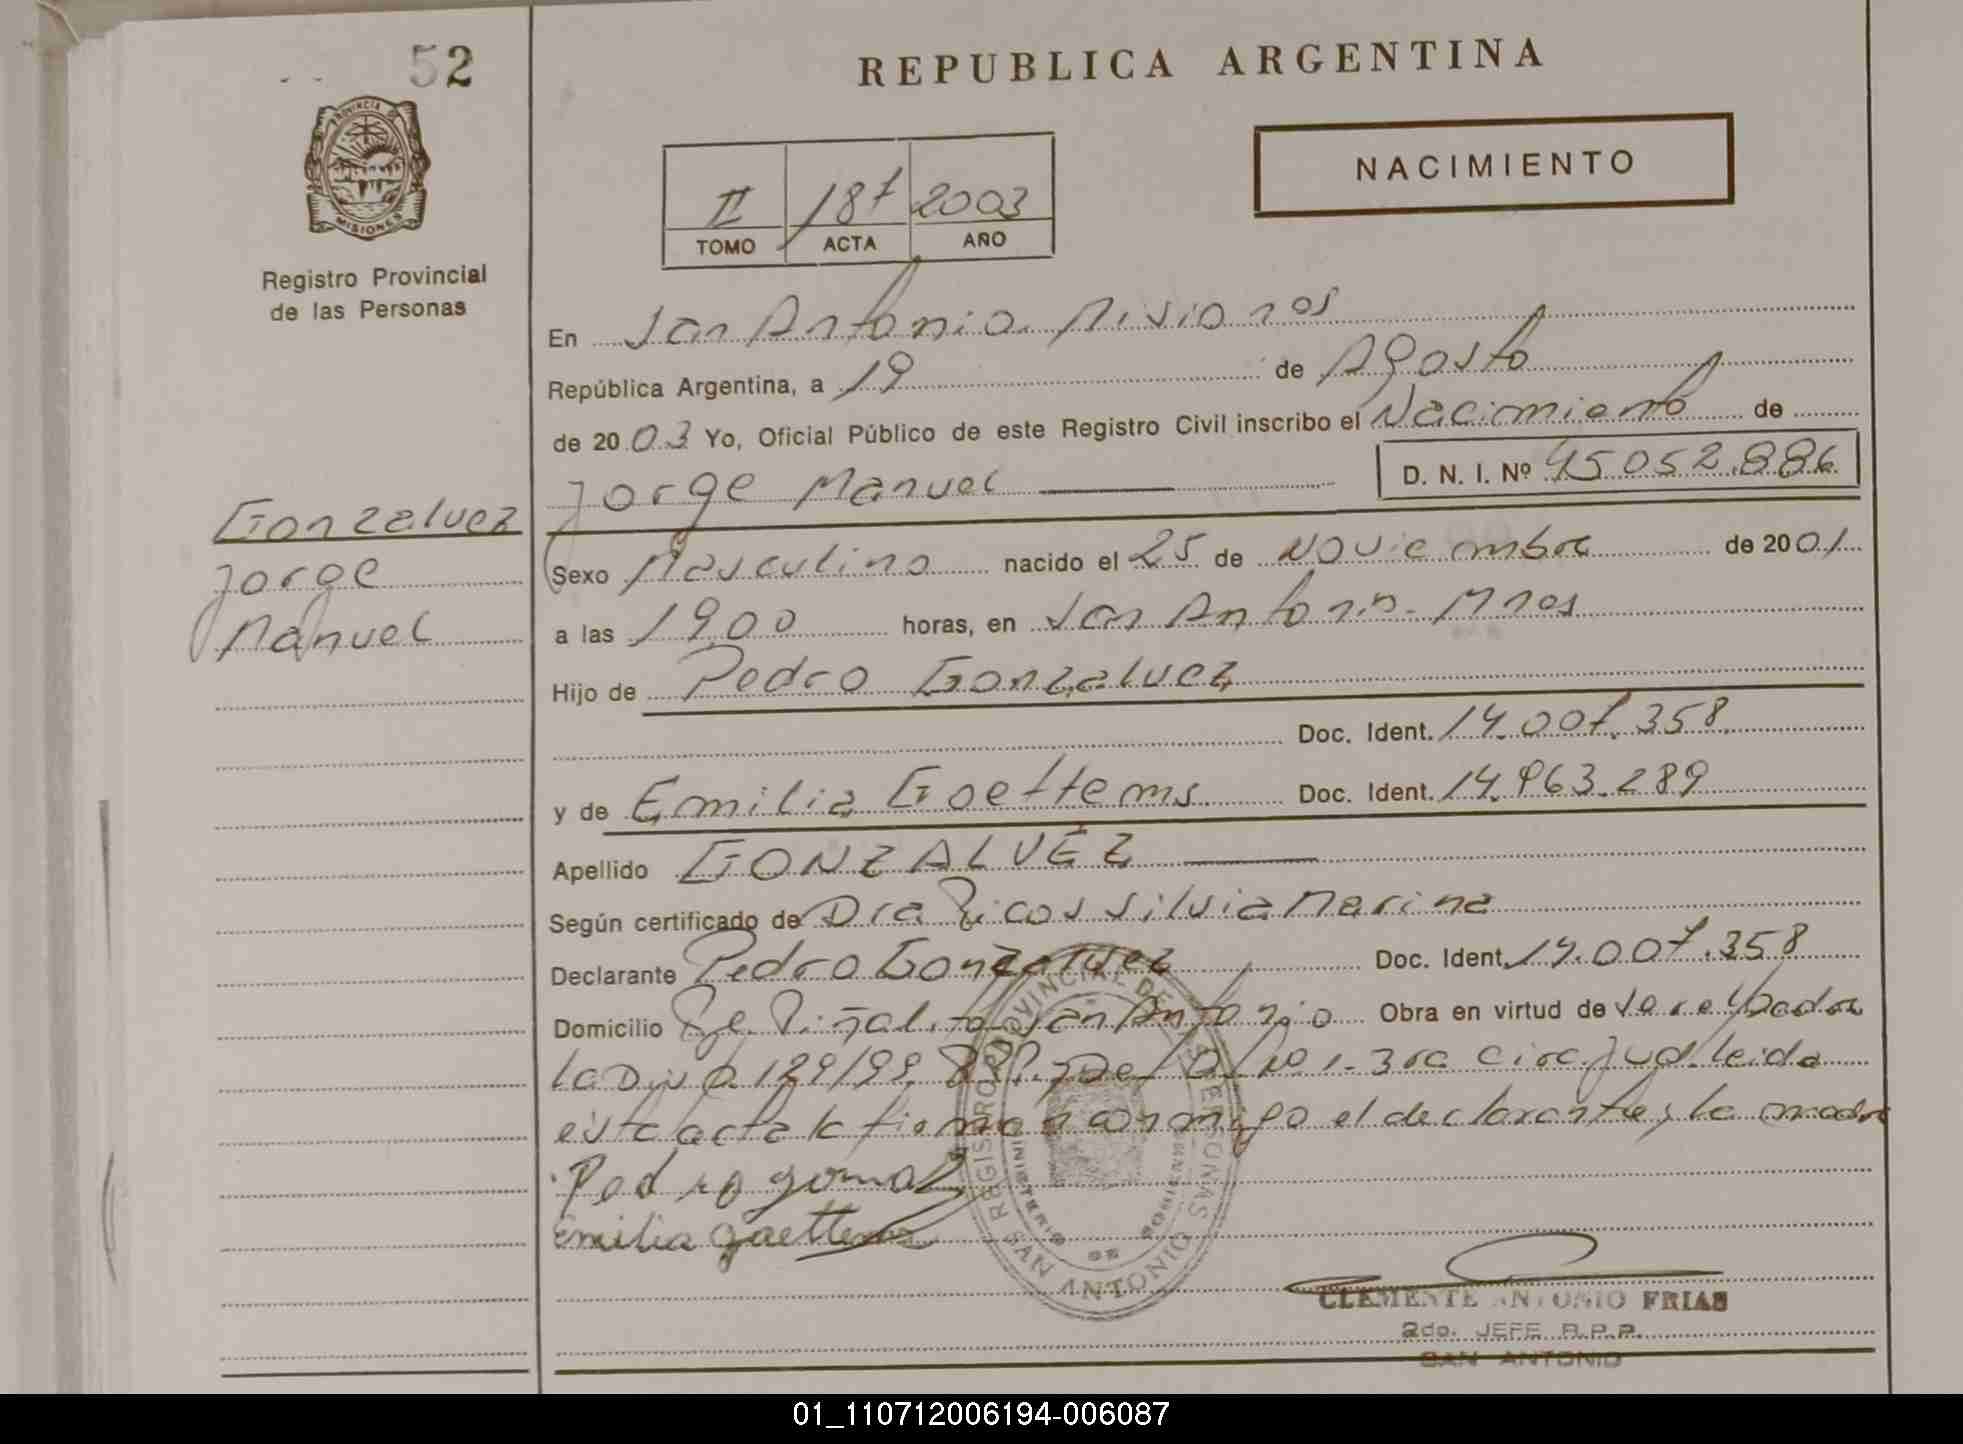 52
REPUBLICA ARGENTINA
PROVINCIA DE MISIONES
Registro Provincial
de las Personas
NACIMIENTO
II 187 2003
TOMO ACTA AÑO
En San Antonio. Misiones
República Argentina, a 19 de Agosto
de 2003 Yo, Oficial Público de este Registro Civil inscribo el Nacimiento de
Jorge Manuel D. N. I. Nº 45052.886
Gonzalvez
Jorge
Manuel
Sexo Masculino nacido el 25 de Noviembre de 2001
a las 19,00 horas, en San Antonio - Mnes
Hijo de Pedro Gonzalvez
Doc. Ident. 14.007.358
y de Emilia Goettems Doc. Ident. 14.963.289
Apellido GONZALVEZ
Según certificado de Dra Ricos Silvia Marina
Declarante Pedro Gonzalvez Doc. Ident. 14.007.358
Domicilio Pje. Piñalito San Antonio Obra en virtud de
la Disp. 129/99 Nº 1 - 3ra Circ. Jud. leida
esta acta la firman conmigo el declarante y la madre
Pedro
Emilia Goettems
REGISTRO PROVINCIAL DE LAS PERSONAS
MINISTERIO DE GOBIERNO
SAN ANTONIO
CLEMENTE ANTONIO FRIAS
2do. JEFE R.P.P.
SAN ANTONIO
01_110712006194-006087